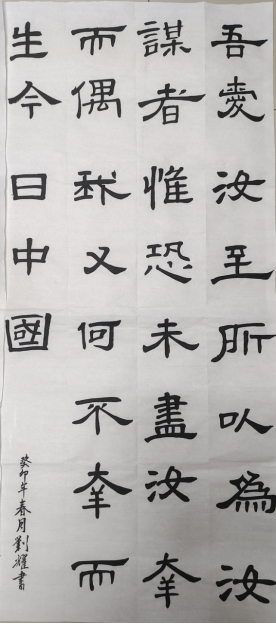 吾愛汝至所以為汝
謀者惟恐未盡汝幸
而偶我又何不幸而
生今日中國
癸卯年春月劉耀書